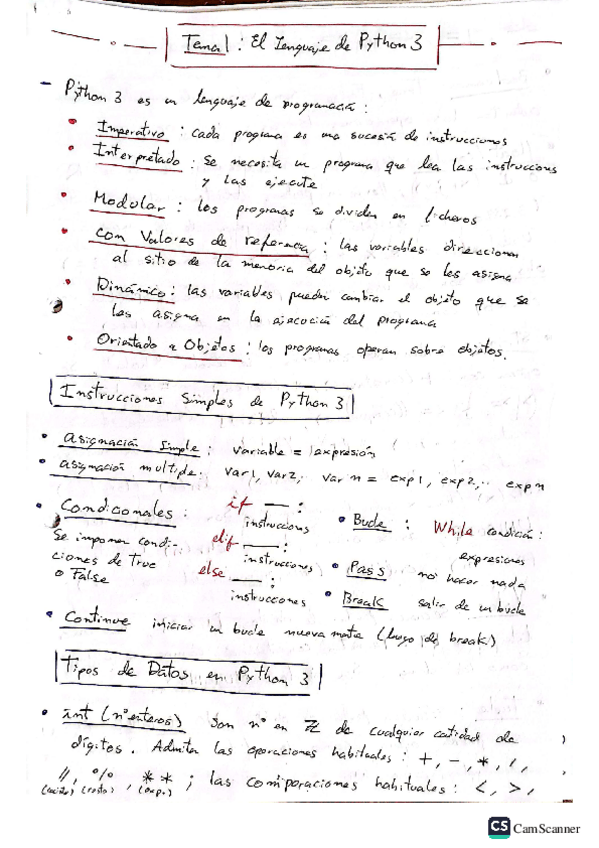 Tema 1: El Lenguaje de Python 3
- Python 3 es un lenguaje de programación:
• Imperativo: cada programa es una sucesión de instrucciones
• Interpretado: Se necesita un programa que lea las instrucciones
y las ejecute
• Modular: los programas se dividen en ficheros
• Con Valores de referencia: las variables direccionan
al sitio de la memoria del objeto que se les asigna
• Dinámico: las variables pueden cambiar el objeto que se
les asigna en la ejecución del programa
• Orientado a Objetos: los programas operan sobre objetos.
Instrucciones Simples de Python 3
• Asignación simple: variable = expresión
• asignación multiple. var1, var2,.. var n = exp1, exp2,.. exp n
• Condicionales:
Se imponen condi-
ciones de True
o False
if __:
instrucciones
elif __:
instrucciones
else __:
instrucciones
• Bucle: While condición:
expresiones
• Pass no hacer nada
• Break salir de un bucle
• Continue iniciar un bucle nuevamente (luego de break)
Tipos de Datos en Python 3
• int (nº enteros) Son nº en ℤ de cualquier cantidad de
dígitos. Admiten las operaciones habituales: +, -, *, /,
//, %, **; las comparaciones habituales: <, >,
(resto) (exp.)
CS CamScanner